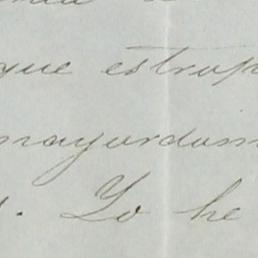 que estrop
mayordom
. Yo he